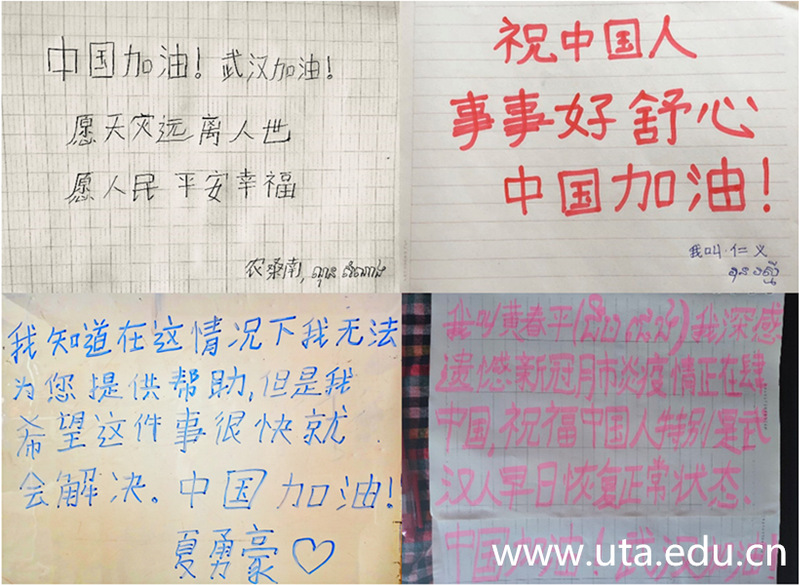 中国加油！武汉加油！
愿天灾远离人世
愿人民平安幸福
农桑南,
祝中国人
事事好舒心
中国加油！
我叫·仁义
我知道在这情况下我无法
为您提供帮助,但是我
希望这件事很快就
会解决。中国加油！
夏勇豪♡
我叫黄春平( )我深感
遗憾新冠月市炎疫情正在肆
中国,祝福中国人特别是武
汉人早日恢复正常状态、
中国加油！武汉加油！
www.uta.edu.cn